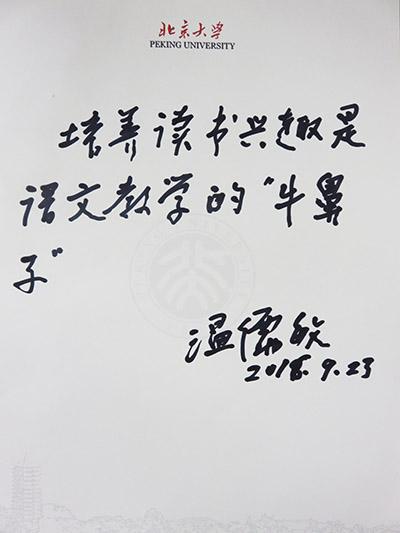 北京大学
PEKING UNIVERSITY
培养读书兴趣是
语文教学的“牛鼻
子”
温儒敏
2018.9.23